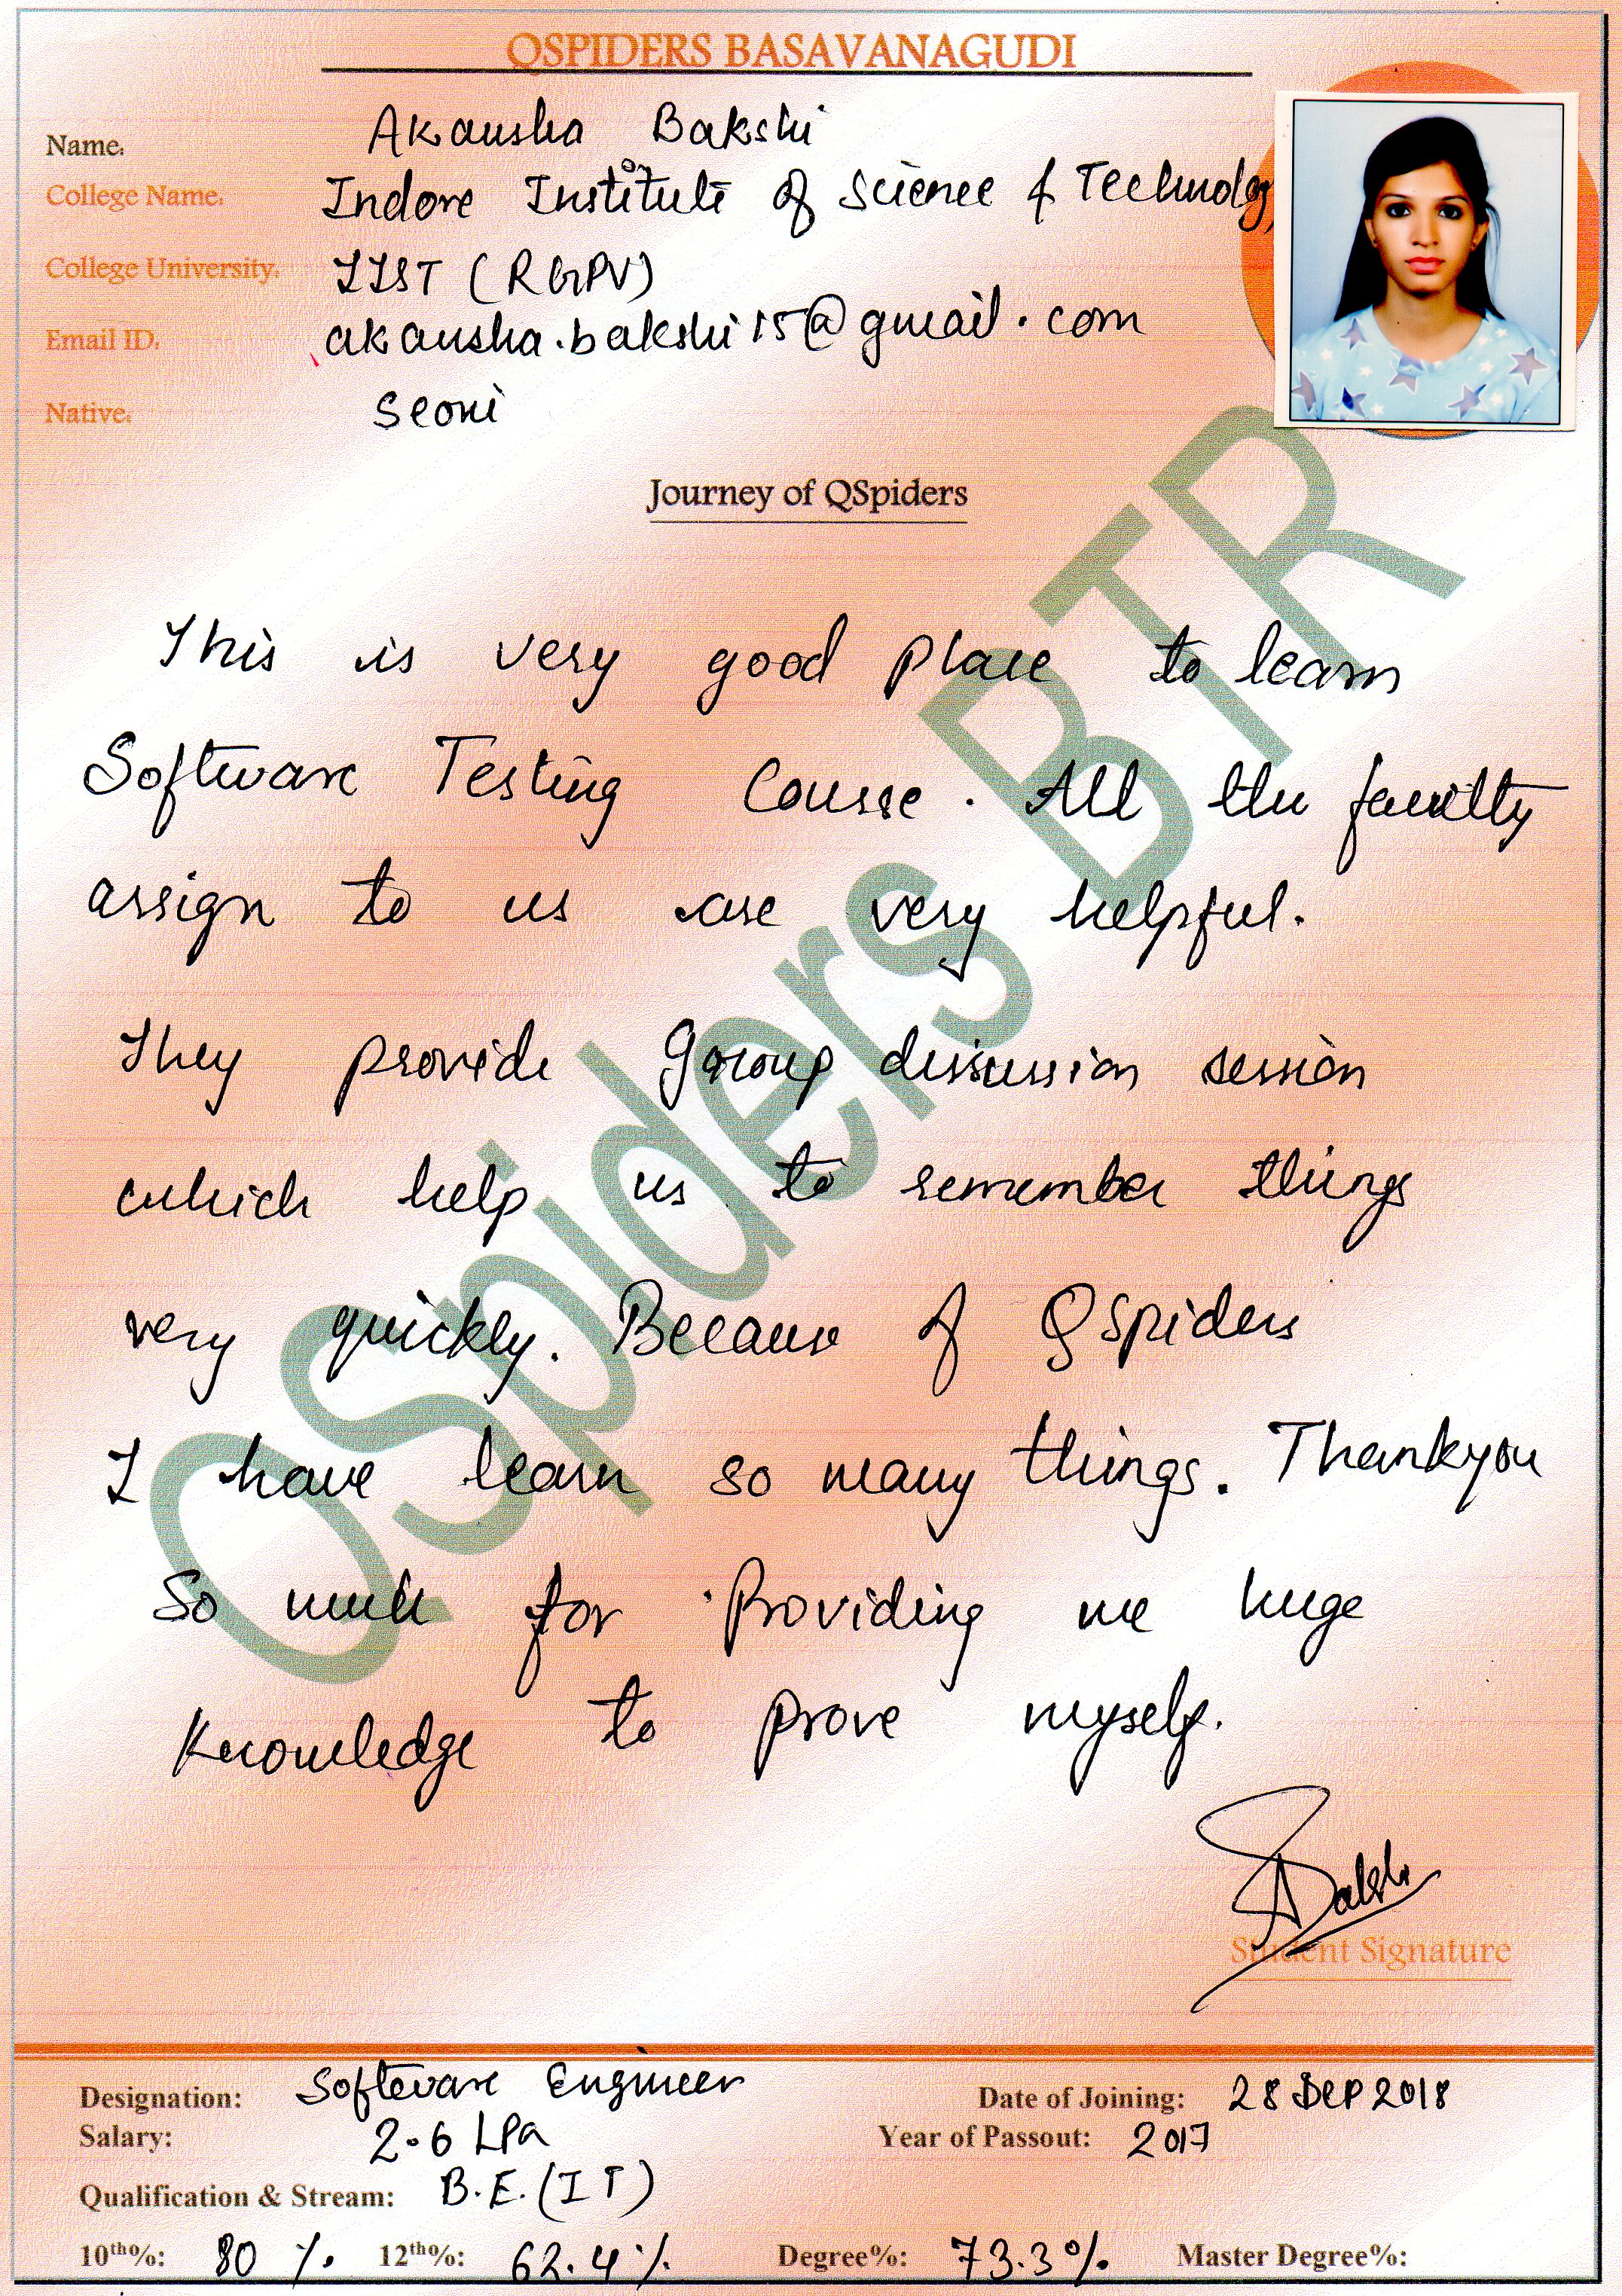 QSPIDERS BASAVANAGUDI
Name: Akansha Bakshi
College Name: Indore Institute of Science & Technology
College University: IIST (RGPV)
Email ID: akansha.bakshi15@gmail.com
Native: Seoni
Journey of QSpiders
This is very good place to learn
Software Testing Course. All the faculty
assign to us are very helpful.
They provide group discussion session
which help us to remember things
very quickly. Because of QSpiders
I have learn so many things. Thankyou
So much for Providing me huge
Knowledge to prove myself.
QSpiders BTR
Student Signature
Designation: Software Engineer Date of Joining: 28 Sep 2018
Salary: 2.6 LPa Year of Passout: 2017
Qualification & Stream: B.E. (IT)
10th%: 80 % 12th%: 62.4 % Degree%: 73.3% Master Degree%: